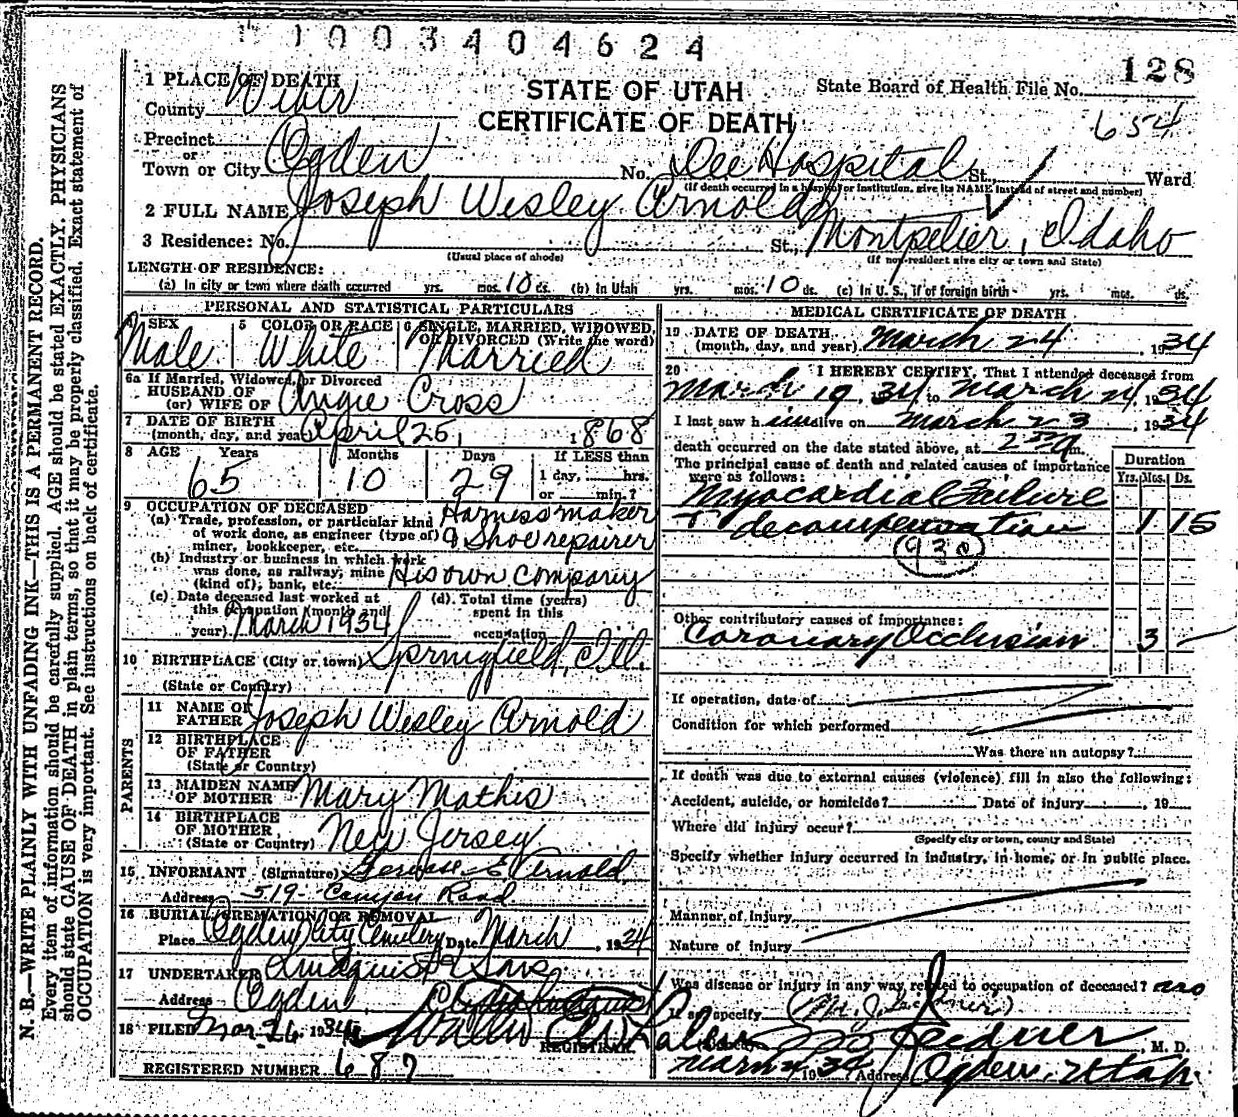 1003404624
128
STATE OF UTAH
CERTIFICATE OF DEATH
State Board of Health File No.
654
1 PLACE OF DEATH
County Weber
Precinct
or
Town or City Ogden No. Dee Hospital St., Ward
(If death occurred in a hospital or institution, give its NAME instead of street and number)
2 FULL NAME Joseph Wesley Arnold
3 Residence: No. St., Montpelier, Idaho
(Usual place of abode) (If non-resident give city or town and State)
LENGTH OF RESIDENCE:
(a) In city or town where death occurred yrs. mos. 10 ds. (b) In Utah yrs. mos. 10 ds. (c) In U. S., if of foreign birth yrs. mos. ds.
PERSONAL AND STATISTICAL PARTICULARS
4 SEX Male
5 COLOR OR RACE White
6 SINGLE, MARRIED, WIDOWED, OR DIVORCED (Write the word) Married
6a If Married, Widowed, or Divorced
HUSBAND OF
(or) WIFE OF Angie Cross
7 DATE OF BIRTH
(month, day, and year) April 25, 1868
8 AGE Years 65 Months 10 Days 29 If LESS than
1 day, hrs.
or min.?
9 OCCUPATION OF DECEASED
(a) Trade, profession, or particular kind of work done, as engineer (type of) miner, bookkeeper, etc. Harness maker & Shoe repairer
(b) Industry or business in which work was done, as railway, mine (kind of), bank, etc. His own company
(c) Date deceased last worked at this occupation (month and year) March 1934
(d) Total time (years) spent in this occupation
10 BIRTHPLACE (City or town) Springfield, Ill.
(State or Country)
PARENTS
11 NAME OF FATHER Joseph Wesley Arnold
12 BIRTHPLACE OF FATHER
(State or Country)
13 MAIDEN NAME OF MOTHER Mary Mathis
14 BIRTHPLACE OF MOTHER
(State or Country) New Jersey
15 INFORMANT (Signature) E Arnold
Address 519 Canyon Road
16 BURIAL, CREMATION, OR REMOVAL
Place Ogden City Cemetery Date March , 1934
17 UNDERTAKER Lindquist & Sons
Address Ogden,
18 FILED Mar 26, 1934
REGISTRAR.
REGISTERED NUMBER 687
MEDICAL CERTIFICATE OF DEATH
19 DATE OF DEATH
(month, day, and year) March 24 , 1934
20 I HEREBY CERTIFY, That I attended deceased from
March 19, 34 to March 24, 1934
I last saw him alive on March 23 , 1934
death occurred on the date stated above, at m.
The principal cause of death and related causes of importance
were as follows:
Duration
Yrs. Mos. Ds.
Myocardial Failure
+ decompensation 1 15
Other contributory causes of importance:
Coronary Occlusion 3
If operation, date of
Condition for which performed
Was there an autopsy?
If death was due to external causes (violence) fill in also the following:
Accident, suicide, or homicide? Date of injury , 19
Where did injury occur?
(Specify city or town, county and State)
Specify whether injury occurred in industry, in home, or in public place.
Manner of Injury
Nature of injury
Was disease or injury in any way related to occupation of deceased? no
If so, specify
M. D.
1934 Address Ogden, Utah
N. B.—WRITE PLAINLY WITH UNFADING INK—THIS IS A PERMANENT RECORD.
Every item of information should be carefully supplied. AGE should be stated EXACTLY. PHYSICIANS
should state CAUSE OF DEATH in plain terms, so that it may be properly classified. Exact statement of
OCCUPATION is very important. See instructions on back of certificate.